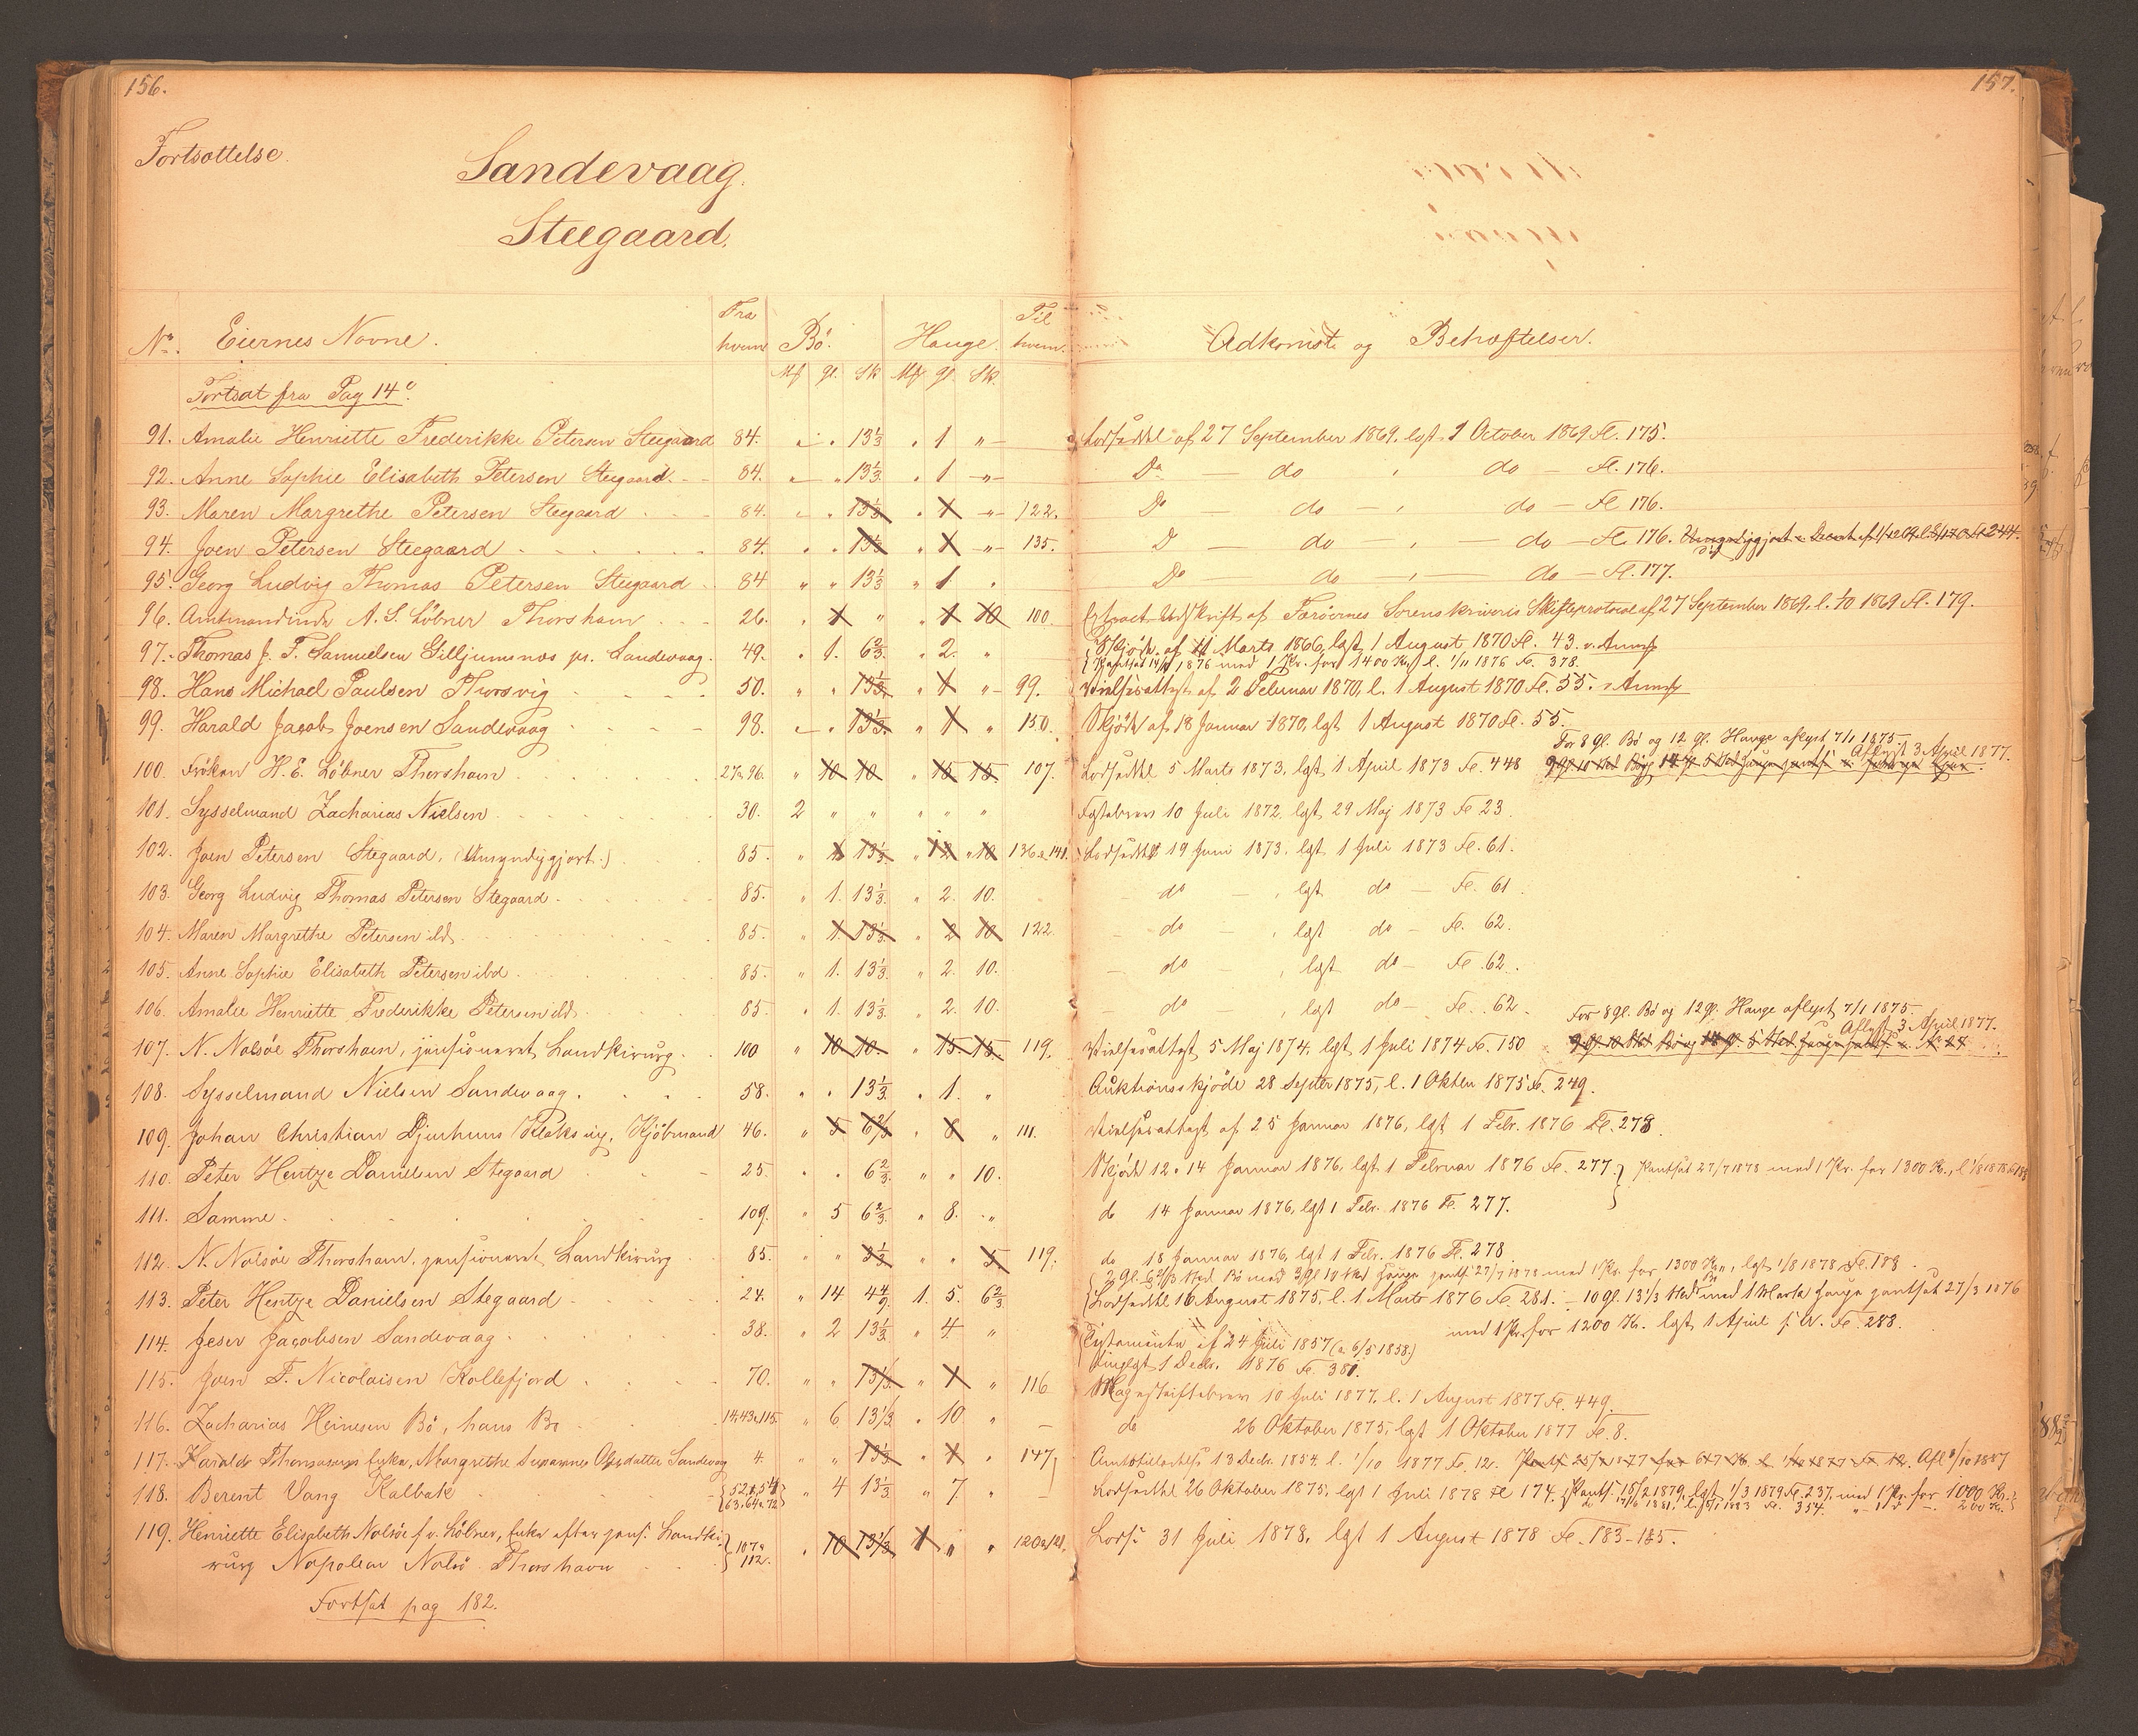 156.
157.
Fortsættelse.
Sandevaag.
Steegaard.
No. Eiernes Navne. Fra hvem Bö. Hauge. Til hvem. Adkomst og Behæftelser.
Mk gl. Sk Mk gl. Sk.
Fortsat fra Pag 140.
91. Amalie Henriette Frederikke Petersen Steegaard 84. " " 13 1/3 " 1 " Lodseddel af 27 September 1869, lgst. 1 October 1869 Fl. 175.
92. Anne Sophie Elisabeth Petersen Steegaard. 84. " " 13 1/3 " 1 " Do — do — do — Fl. 176.
93. Maren Margrethe Petersen Steegaard 84. " " 13 1/3 " 1 " 122. Do — do — do — Fl. 176.
94. Joen Petersen Steegaard 84. " " 13 1/3 " 1 " 135. D — do — do — Fl. 176.
95. Georg Ludvig Thomas Petersen Steegaard 84 " " 13 1/3 " 1 " Do — do — do — Fl. 177.
96. Amtmandinde A. S. Löbner Thorshavn 26. " 1 " " 1 10 100. Extract Udskrift af Færöernes Sorenskriveris Skifteprotocol af 27 September 1869, l. 1/10 1869 Fl. 179.
97. Thomas J. F. Samuelsen Gilljumsnæs pr. Sandevaag. 49. " 1. 6 2/3. " 2. " Skjöde af 11 Marts 1866, lgst. 1 August 1870 Fl. 43.
1876 med 1 Pr. for 1400 Kr. l. 1/11 1876 Fo. 378.
98. Hans Michael Paulsen Thorsvig 50. " " 13 1/3 " 1 " 99. Vielsesattest af 2 Februar 1870, l. 1 August 1870 Fl. 55.
99. Harald Jacob Joensen Sandevaag 98. " " 13 1/3 " 1 " 150. Skjöde af 18 Januar 1870, lgst 1 August 1870 Fl. 55.
For 8 Gl. Bö og 12 gl. Hauge aflyst 7/1 1875
100. Fröken H. E. Löbner Thorshavn 27 & 96. " 10 10 " 15 15 107. Lodseddel 5 Marts 1873, lgst. 1 April 1873 Fo. 448 Aflyst 3 April 1877.
101. Sysselmand Zacharias Nielsen 30. 2 " " " " " Fæstebrev 10 Juli 1872, lgst. 29 Maj 1873 Fo 23.
102. Joen Petersen Stegaard, (Umyndiggjort.) 85. " 1 13 1/3 " 2 10 136 & 141. Lodseddel 19 Juni 1873, lgst 1 Juli 1873 Fl. 61.
103. Georg Ludvig Thomas Petersen Stegaard 85. " 1. 13 1/3. " 2. 10. do — , lgst do — Fl. 61.
104. Maren Margrethe Petersen ibd. 85. " 1. 13 1/3 " 2 10 122 do — , lgst do — Fl. 62.
105. Anne Sophie Elisabeth Petersen ibd. 85. " 1. 13 1/3. " 2. 10. do — , lgst do — Fl. 62.
106. Amalie Henriette Frederikke Petersen ibd. 85. " 1. 13 1/3. " 2. 10. do — , lgst do — Fo. 62.
For 8 gl. Bö og 12 gl. Hauge aflyst 7/1 1875.
107. N. Nolsöe Thorshavn, pensioneret Landkirurg. 100 " 10 10. " 15. 15. 119. Vielsesattest 5 Maj 1874, lgst 1 Juli 1874 Fo. 150 Aflyst 3 April 1877.
108. Sysselmand Nielsen Sandevaag. 58. " " 13 1/3. " 1. " Auktionsskjöde 28 Septbr 1875, l. 1 Oktbr 1875 Fo. 249.
109. Johan Christian Djurhuus Klaksvig, Kjöbmand 46. " 5 6 2/3 " 8 " 111. Vielsesattest af 25 Januar 1876, lgst 1 Febr. 1876 Fo. 278.
110. Peter Hentze Danielsen Stegaard 25. " " 6 2/3. " " 10. Skjöde 12 & 14 Januar 1876, lgst. 1 Februar 1876 Fo. 277. Pantsat 27/7 1878 med 1 Pr. for 1300 Kr.
111. Samme 109. " 5 6 2/3. " 8. " do 14 Januar 1876, lgst 1 Febr. 1876 Fo. 277.
112. N. Nolsöe Thorshavn, pensioneret Landkirurg 85. " " 3 1/3 " " 5. 119. do 18 Januar 1876, lgst 1 Febr. 1876 Fl. 278
27/7 1878 med 1 Pr. for 1300 Kr., lgst 1/8 1878 Fo. 188.
113. Peter Hentze Danielsen Stegaard 24. " 14 4 4/9. 1. 5. 6 2/3. Lodseddel 16 August 1875, l. 1 Marts 1876 Fo. 281. — 10 gl. 13 1/3 med 1 Mark Hauge pantsat 27/3 1876
med 1 Pr. for 1200 Kr. lgst 1 April s. A. Fo. 283.
114. Jeser Jacobsen Sandevaag 38. " 2 13 1/3. " 4. " Testamente af 24 Juli 1857 (& 6/5 1858.)
tinglyst 1 Decbr. 1876 Fo. 381.
115. Joen F. Nicolaisen Kollefjord 70. " " 13 1/3. " 1 " 116 Mageskiftebrev 10 Juli 1877, l. 1 August 1877 Fo. 449.
116. Zacharias Heinesen Bö, hans Bo 14, 43 & 115. " 6 13 1/3. " 10 " — do 26 Oktober 1875, lgst 1 Oktober 1877 Fo. 8.
117. Haralds Thomasens Enke, Margrethe Susannes Olesdatter Sandevaag 4. " " 13 1/3 " 1 " 147 13 Decbr. 1854. l. 1/10 1877 Fo. 12. Afl 8/10 1887
118. Berent Vang Kalbak 52, 54 63, 64 & 72 " 4 13 1/3 " 7. " Lodseddel 26 Oktober 1875, lgst 1 Juli 1878 Fo 174. Pants. 18/2 1879, lgst 1/3 1879 Fo. 237, med 1 Pr. for 1000 Kr.
119. Henriette Elisabeth Nolsöe f. v. Löbner, Enke efter pens. Landki-
rurg Napoleon Nolsö Thorshavn 107 & 112. " 10 13 1/3 1 " " 120 & 121. Lods. 31 Juli 1878, lgst 1 August 1878 Fo. 183-185.
Fortsat pag 182.